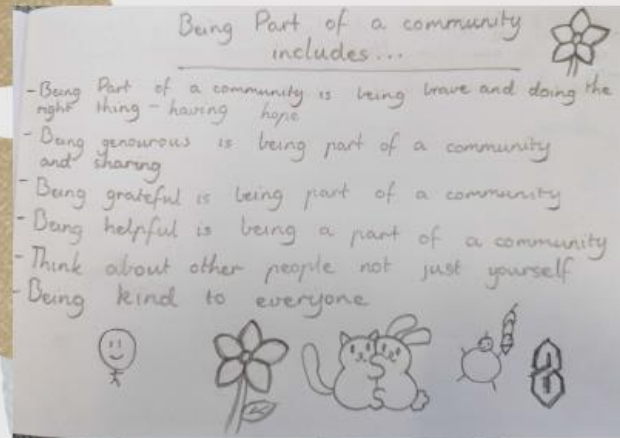 Being Part of a community
includes...
- Being Part of a community is being brave and doing the
right thing - having hope
- Being genourous is being part of a community
and sharing
- Being grateful is being part of a community
- Being helpful is being a part of a community
- Think about other people not just yourself
- Being kind to everyone